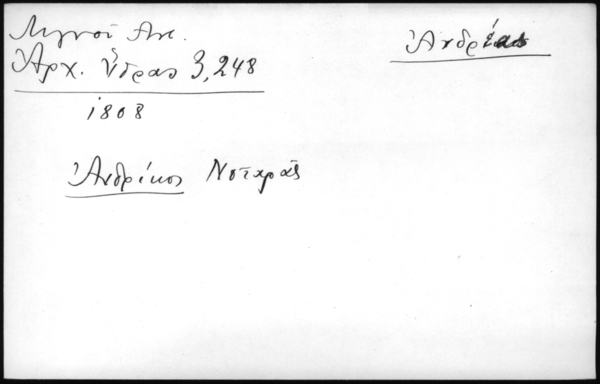 Λιγνοῦ Ἀντ.
Ἀρχ. Ὕδρας 3,248
Ἀνδρέας
1808
Ἀνδρίκος Νοταρᾶς